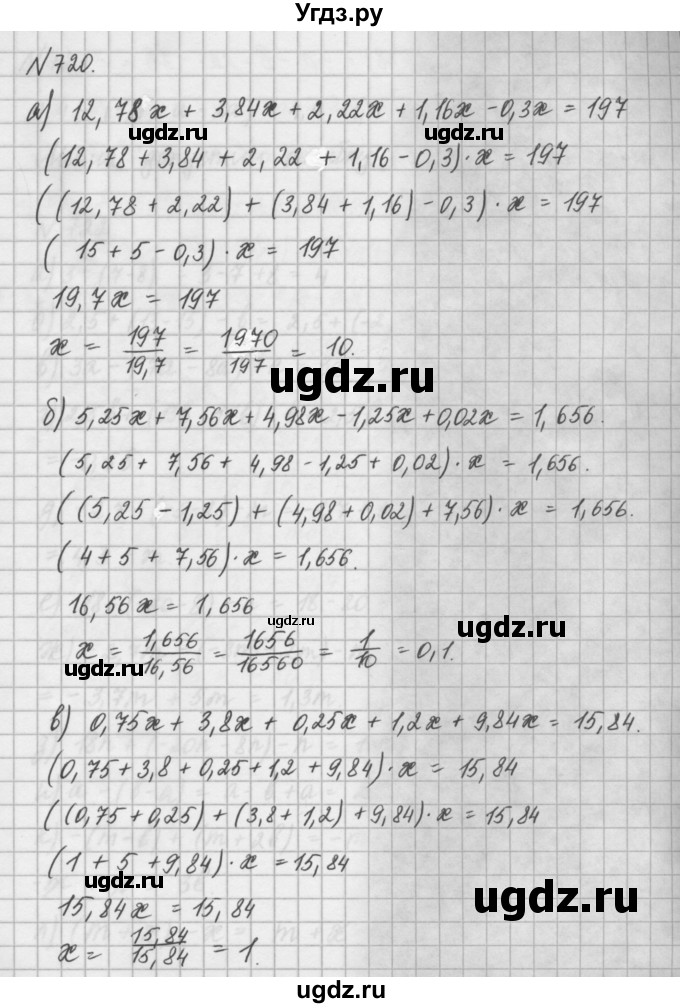 Угдз.ру
N 720.
а) 12,78x + 3,84x + 2,22x + 1,16x - 0,3x = 197
ugdz.ru ugdz.ru
(12,78 + 3,84 + 2,22 + 1,16 - 0,3)·x = 197
((12,78 + 2,22) + (3,84 + 1,16) - 0,3)·x = 197
(15 + 5 - 0,3)·x = 197
19,7x = 197
x = 197/19,7 = 1970/197 = 10.
ugdz.ru
б) 5,25x + 7,56x + 4,98x - 1,25x + 0,02x = 1,656.
(5,25 + 7,56 + 4,98 - 1,25 + 0,02)·x = 1,656.
((5,25 - 1,25) + (4,98 + 0,02) + 7,56)·x = 1,656.
(4 + 5 + 7,56)·x = 1,656.
16,56x = 1,656
ugdz.ru
ugdz.ru
x = 1,656/16,56 = 1656/16560 = 1/10 = 0,1.
ugdz.ru
в) 0,75x + 3,8x + 0,25x + 1,2x + 9,84x = 15,84.
(0,75 + 3,8 + 0,25 + 1,2 + 9,84)·x = 15,84
((0,75 + 0,25) + (3,8 + 1,2) + 9,84)·x = 15,84
(1 + 5 + 9,84)·x = 15,84
ugdz.ru
ugdz.ru
15,84x = 15,84
x = 15,84/15,84 = 1.